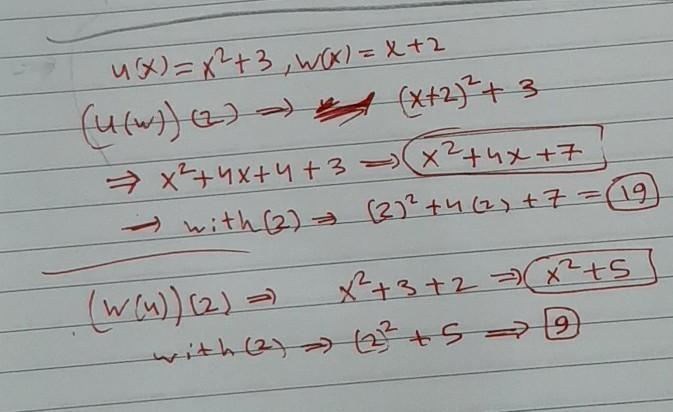 u(x) = x² + 3 , w(x) = x + 2
(u(w))(2) ⇒ (x+2)² + 3
⇒ x² + 4x + 4 + 3 ⇒ x² + 4x + 7
→ with (2) ⇒ (2)² + 4(2) + 7 = 19
(w(u))(2) ⇒ x² + 3 + 2 ⇒ x² + 5
with (2) ⇒ (2)² + 5 ⇒ 9